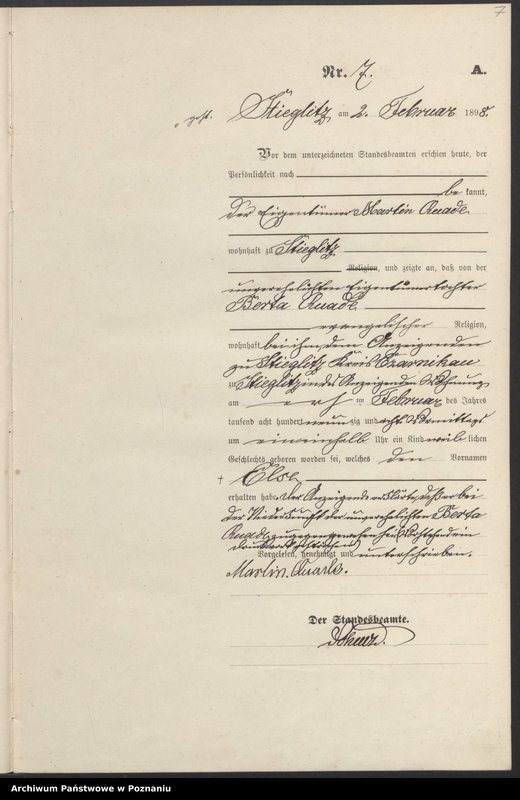 7
Nr. 7. A.
gest. Stieglitz am 2. Februar 1898.
Vor dem unterzeichneten Standesbeamten erschien heute, der
Persönlichkeit nach
be kannt,
der Eigentümer Martin Quade
wohnhaft zu Stieglitz
Religion, und zeigte an, daß von der
unverehelichten Eigentümertochter
Berta Quade
evangelischer Religion,
wohnhaft bei ihm, dem Anzeigenden
zu Stieglitz Kreis Czarnikau
zu Stieglitz in des Anzeigenden Wohnung
am im Februar des Jahres
tausend acht hundert neun zig und acht Vormittags
um ein einhalb Uhr ein Kind weib lichen
Geschlechts geboren worden sei, welches den Vornamen
† Else
erhalten habe. Der Anzeigende erklärte, daß er bei
der Niederkunft der unverehelichten Berta
Quade zugegen gewesen sei. Vorstehend ein
Druckwort gestrichen.
Vorgelesen, genehmigt und unterschrieben.
Martin Quade.
Der Standesbeamte.
Archiwum Państwowe w Poznaniu